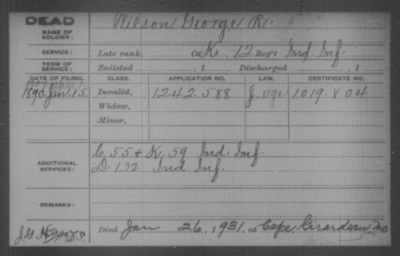 DEAD
NAME OF SOLDIER: Wilson George R.
SERVICE: Late rank, Co K, 12 Reg't Ind Inf.
TERM OF SERVICE: Enlisted , 1 Discharged , 1
DATE OF FILING. CLASS. APPLICATION NO. LAW. CERTIFICATE NO.
1890 Jan. 15. Invalid, 1242.588 1019.804
Widow,
Minor,
ADDITIONAL SERVICES: C 55 & K. 59 Ind Inf.
D 132 Ind Inf.
REMARKS:
Died Jan 26, 1931, at Cape Girardeau, Mo